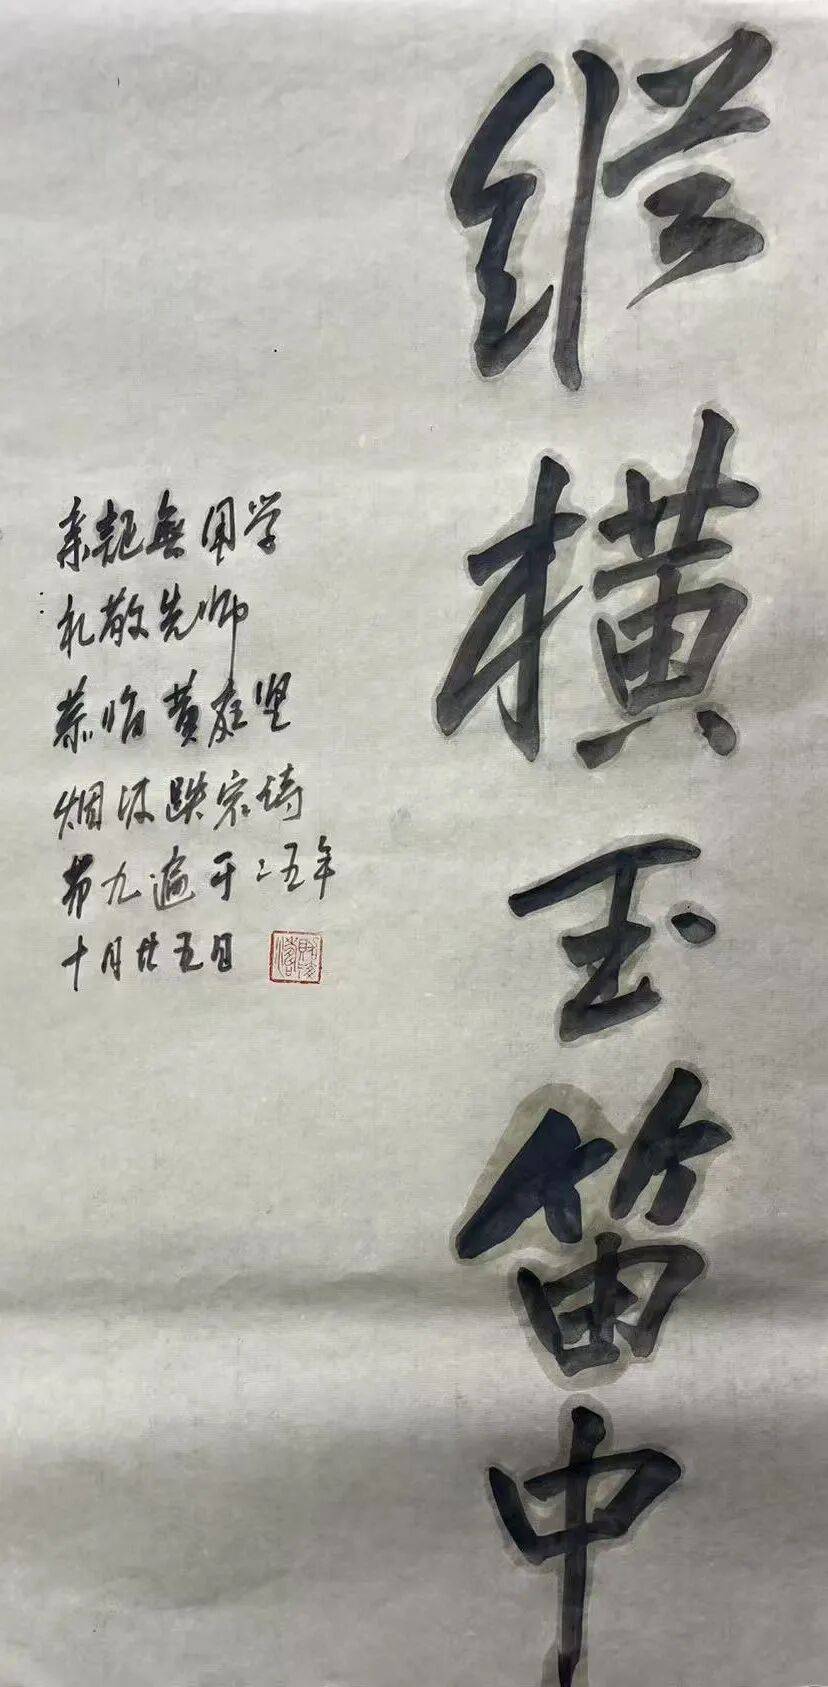 纵横玉笛中
亲近無用学
礼敬先师
恭临黄庭坚
烟波跌宕诗
第九遍于二五年
十月廿五日